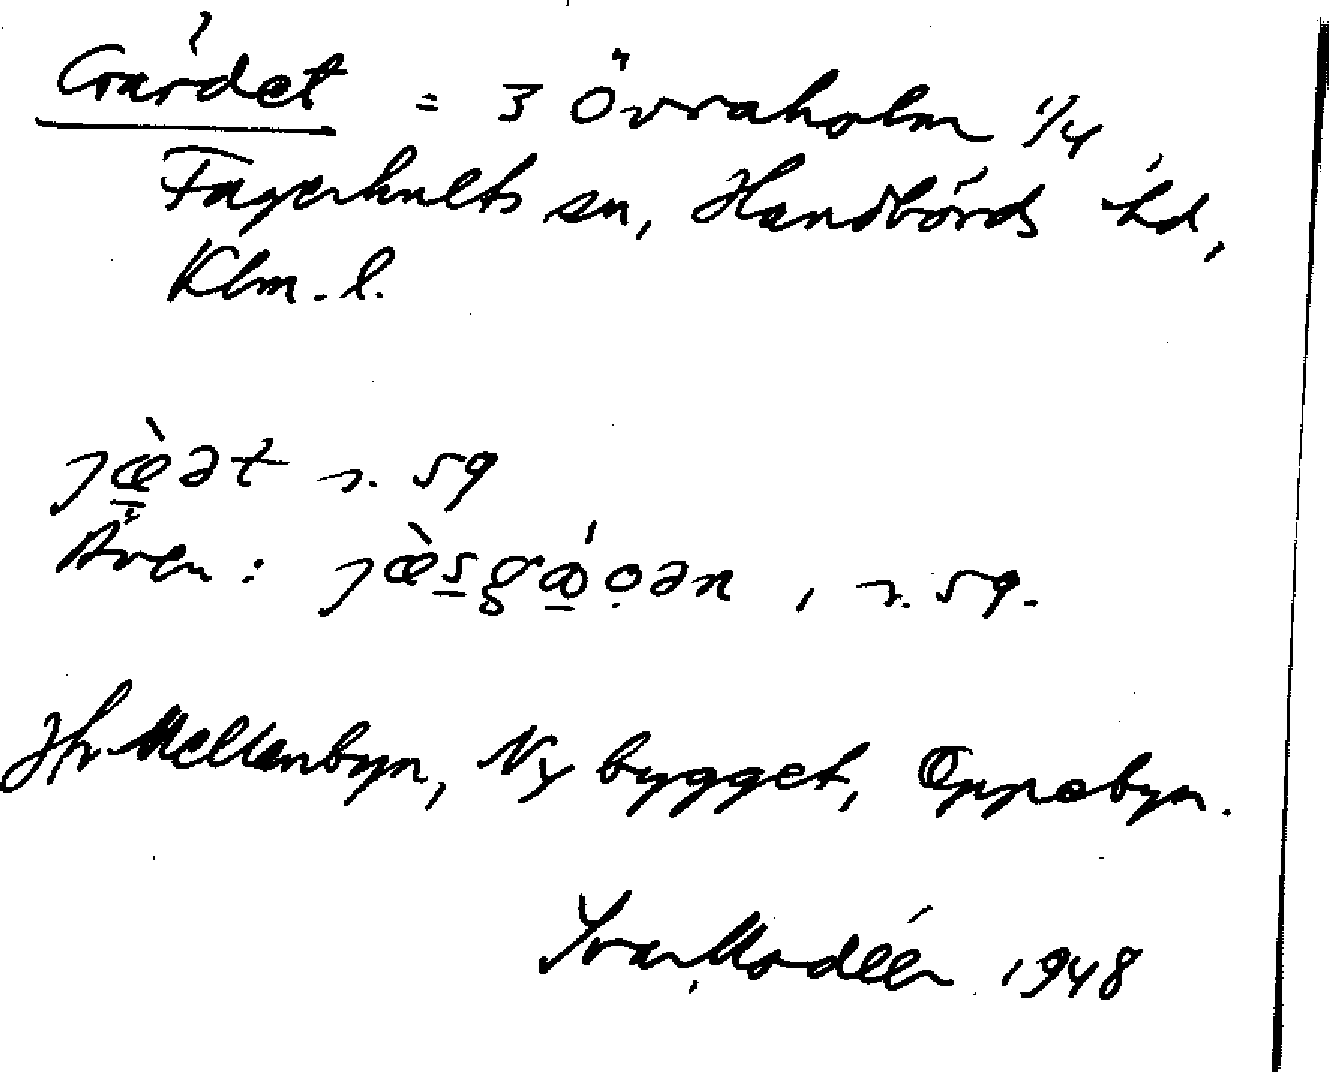 Gärdet = 3 Övraholm 1/4
Fagerhults sn, Handbörds hd,
Klm. l.
ɿæ̀ət r. 59
Även: ɿæ̀sgǻọən, r. 59.
Jfr Mellanbyn, Nybygget, Oppebyn.
Ivar Modéer 1948